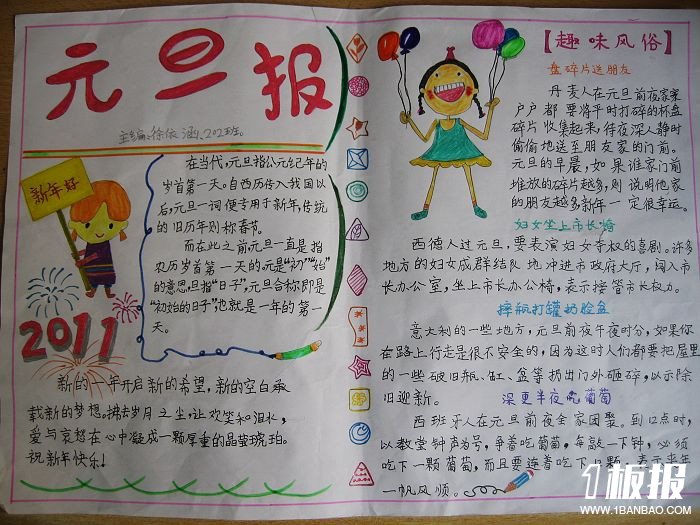 元旦报
主编:徐依涵.202班.
新年好
在当代,元旦指公元纪年的
岁首第一天。自西历传入我国以
后,元旦一词便专用于新年,传统
的旧历年则称春节。
而在此之前元旦一直是指
农历岁首第一天的。元是“初”“始”
的意思,旦指“日子”,元旦合称即是
“初始的日子”也就是一年的第一
天。
2011
新的一年开启新的希望,新的空白承
载新的梦想。拂去岁月之尘,让欢笑和泪水,
爱与哀愁在心中凝成一颗厚重的晶莹琥珀。
祝新年快乐!
【趣味风俗】
盘碎片送朋友
丹麦人在元旦前夜家家
户户都要将平时打碎的杯盘
碎片收集起来,待夜深人静时
偷偷地送至朋友家的门前。
元旦的早晨,如果谁家门前
堆放的碎片越多,则说明他家
的朋友越多新年一定很幸运。
妇女坐上市长椅
西德人过元旦,要表演妇女夺权的喜剧。许多
地方的妇女成群结队地冲进市政府大厅,闯入市
长办公室,坐上市长办公椅,表示接管市长权力。
摔瓶打罐扔脸盆
意大利的一些地方,元旦前夜午夜时分,如果你
在路上行走是很不安全的,因为这时人们都要把屋里
的一些破旧瓶、缸、盆等扔出门外砸碎,以示除
旧迎新。
深更半夜吃葡萄
西班牙人在元旦前夜全家团聚。到12点时,
以教堂钟声为号,争着吃葡萄,每敲一下钟,必须
吃下一颗葡萄,而且要连着吃下12颗,表示来年
一帆风顺。
1板报
WWW.1BANBAO.COM